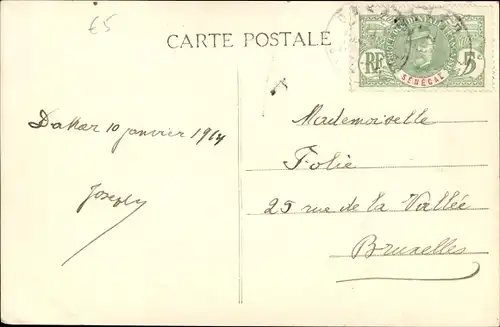 £5
CARTE POSTALE
RF
5
SÉNÉGAL
Dakar 10 janvier 1914
Joseph
Mademoiselle
Folie
25 rue de la Vallée
Bruxelles